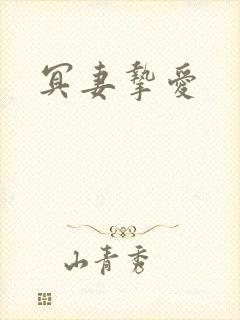 冥妻挚愛
山青秀